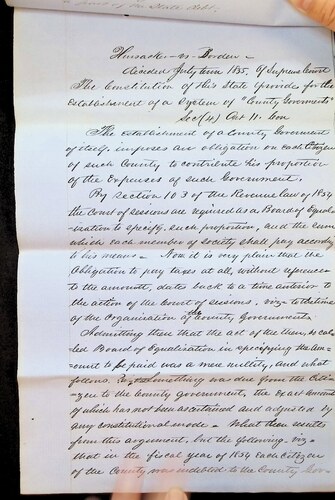 Hunsacker - vs - Borden -
decided July term 1855, of Supreme Court
The Constitution of this State provides for the
Establishment of a System of "County Governments
Sec (4) Art 11. Con
The establishment of a County Government
of itself, imposes an obligation on each Citizen
of such County to contribute his proportion
of the Expenses of such Government.
By Section 103 of the Revenue law of 1854
the Court of sessions are required as a Board of Equal-
-ization to specify, such proportion, and the sum
which each member of society shall pay accordg
to his means - Now it is very plain that the
Obligation to pay taxes at all, without reference
to the amount, dates back to a time anterior to
the action of the Court of sessions, viz - to the time
of the Organization of the County Government
Admitting then that the act of the then, so cal-
led Board of Equalization in specifying the am-
-ount to be paid was a mere nullity, and what
follows. something was due from the Citi-
-zen to the County government, the exact amount
of which has not been ascertained and adjusted by
any constitutional mode - What then results
from this argument, but the following, viz -
that in the fiscal year of 1854 each Citizen
of the County was indebted to the County Gov-